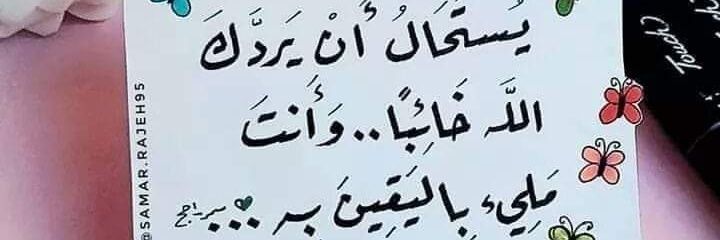 يُستَحَالُ أَنْ يَردَّكَ
اللَّه خَائِبًا..وَأَنتَ
مَلِيء بِاليَقِينَ بِهِ...
@SAMAR.RAJEH95
Touch